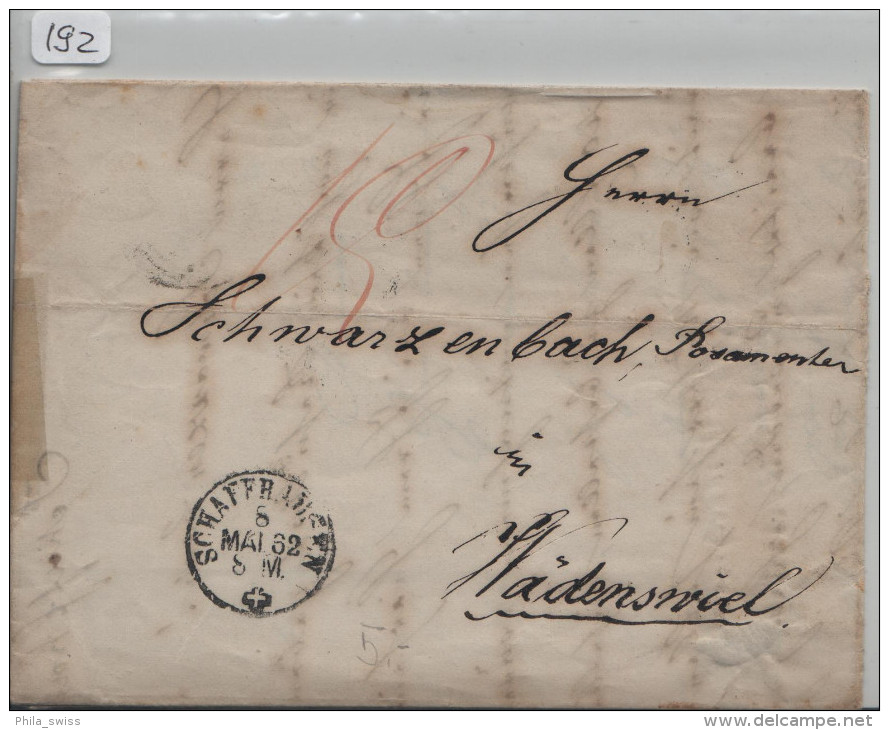 192
15
Herrn
Schwarzenbach, Posamenter
in
Wädensweil
SCHAFFHAUSEN
8
MAI 62
8 M.
Phila_swiss
delcampe.net